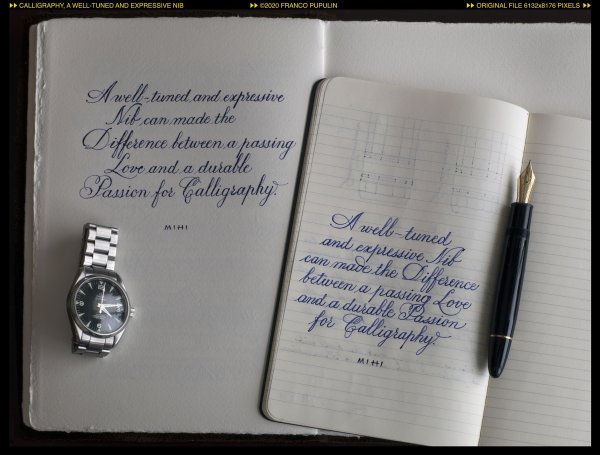 ▸▸ CALLIGRAPHY, A WELL-TUNED AND EXPRESSIVE NIB
▸▸ ©2020 FRANCO PUPULIN
▸▸ ORIGINAL FILE 6132x8176 PIXELS ▸▸
A well-tuned and expressive
Nib can made the
Difference between a passing
Love and a durable
Passion for Calligraphy.
MIHI
A well-tuned
and expressive Nib
can made the Difference
between a passing Love
and a durable Passion
for Calligraphy.
MIHI